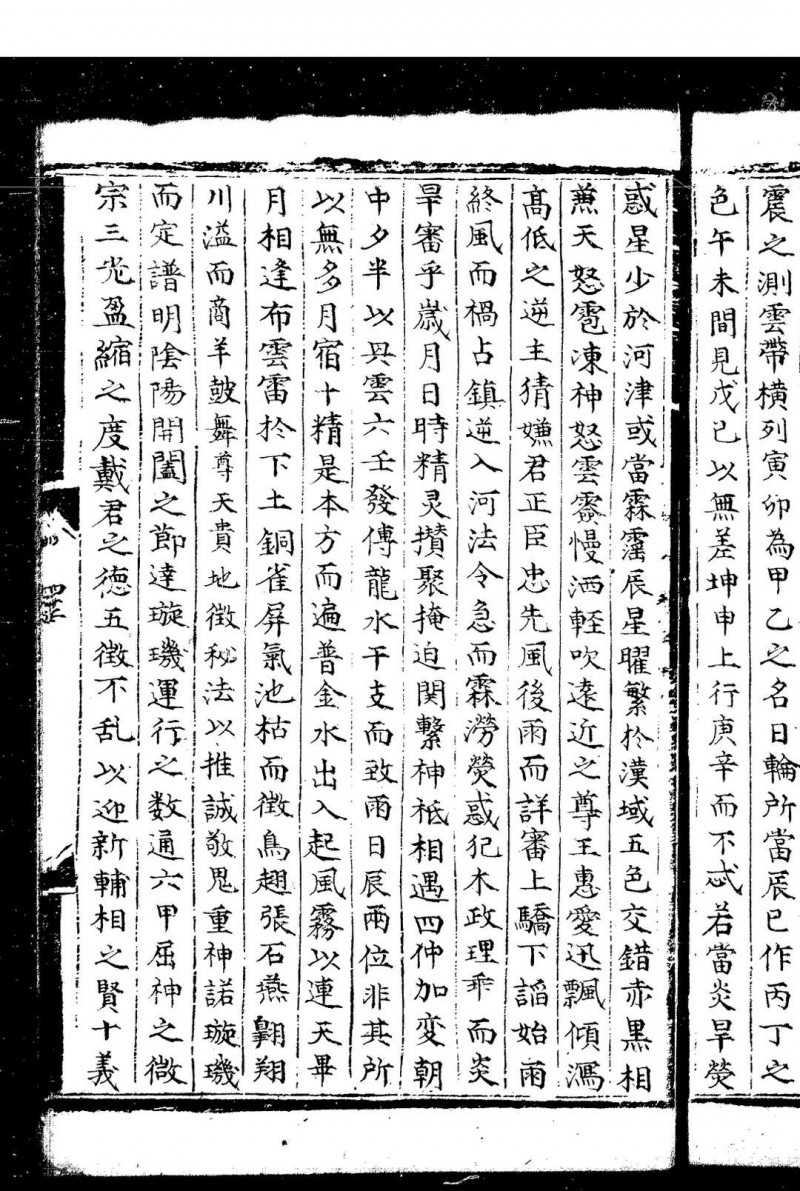 震之測雲帶橫列寅卯為甲乙之名日輪所當辰巳作丙丁之
色午未間見戊己以無差坤申上行庚辛而不忒若當炎旱熒
惑星少於河津或當霖霪辰星曜繁於漢域五色交錯赤黑相
蕪天怒雹凍神怒雲霧慢洒輕吹遠近之尊王惠愛迅飄傾瀉
髙低之逆主猜嫌君正臣忠先風後雨而詳審上驕下謟始雨
終風而禍占鎮逆入河法令急而霖澇熒惑犯木政理乖而炎
旱審乎嵗月日時精灵攅聚掩迫関繫神祇相遇四仲加变朝
中夕半以興雲六壬發傳龍水干支而致雨日辰兩位非其所
以無多月宿十精是本方而遍普金水出入起風霧以連天畢
月相逢布雲雷於下土銅雀屏氣池枯而徵鳥趐張石燕翺翔
川溢而商羊鼓舞尊天貴地徴秘法以推誠敬鬼重神諾璇璣
而定譜明陰陽開闔之節達璇璣運行之数通六甲屈神之微
宗三光盈縮之度戴君之德五徴不乱以迎新輔相之賢十義